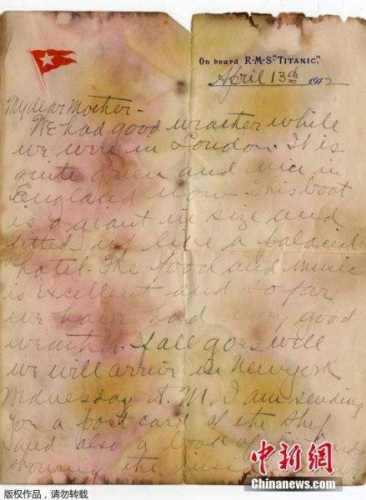 On board R·M·S "TITANIC".
April 13th 1912
My dear Mother-
We had good weather while
we were in London. It is
quite green and nice in
England now. This boat
is a giant in size and
fitted up like a palacial
hotel. The food and music
is excellent and so far
we have had very good
weather. If all goes well
we will arrive in New York
Wednesday A.M. I am sending
you a post card of the ship
and also a book of
showing the inside
中新網
Chinanews.com
版权作品，请勿转载